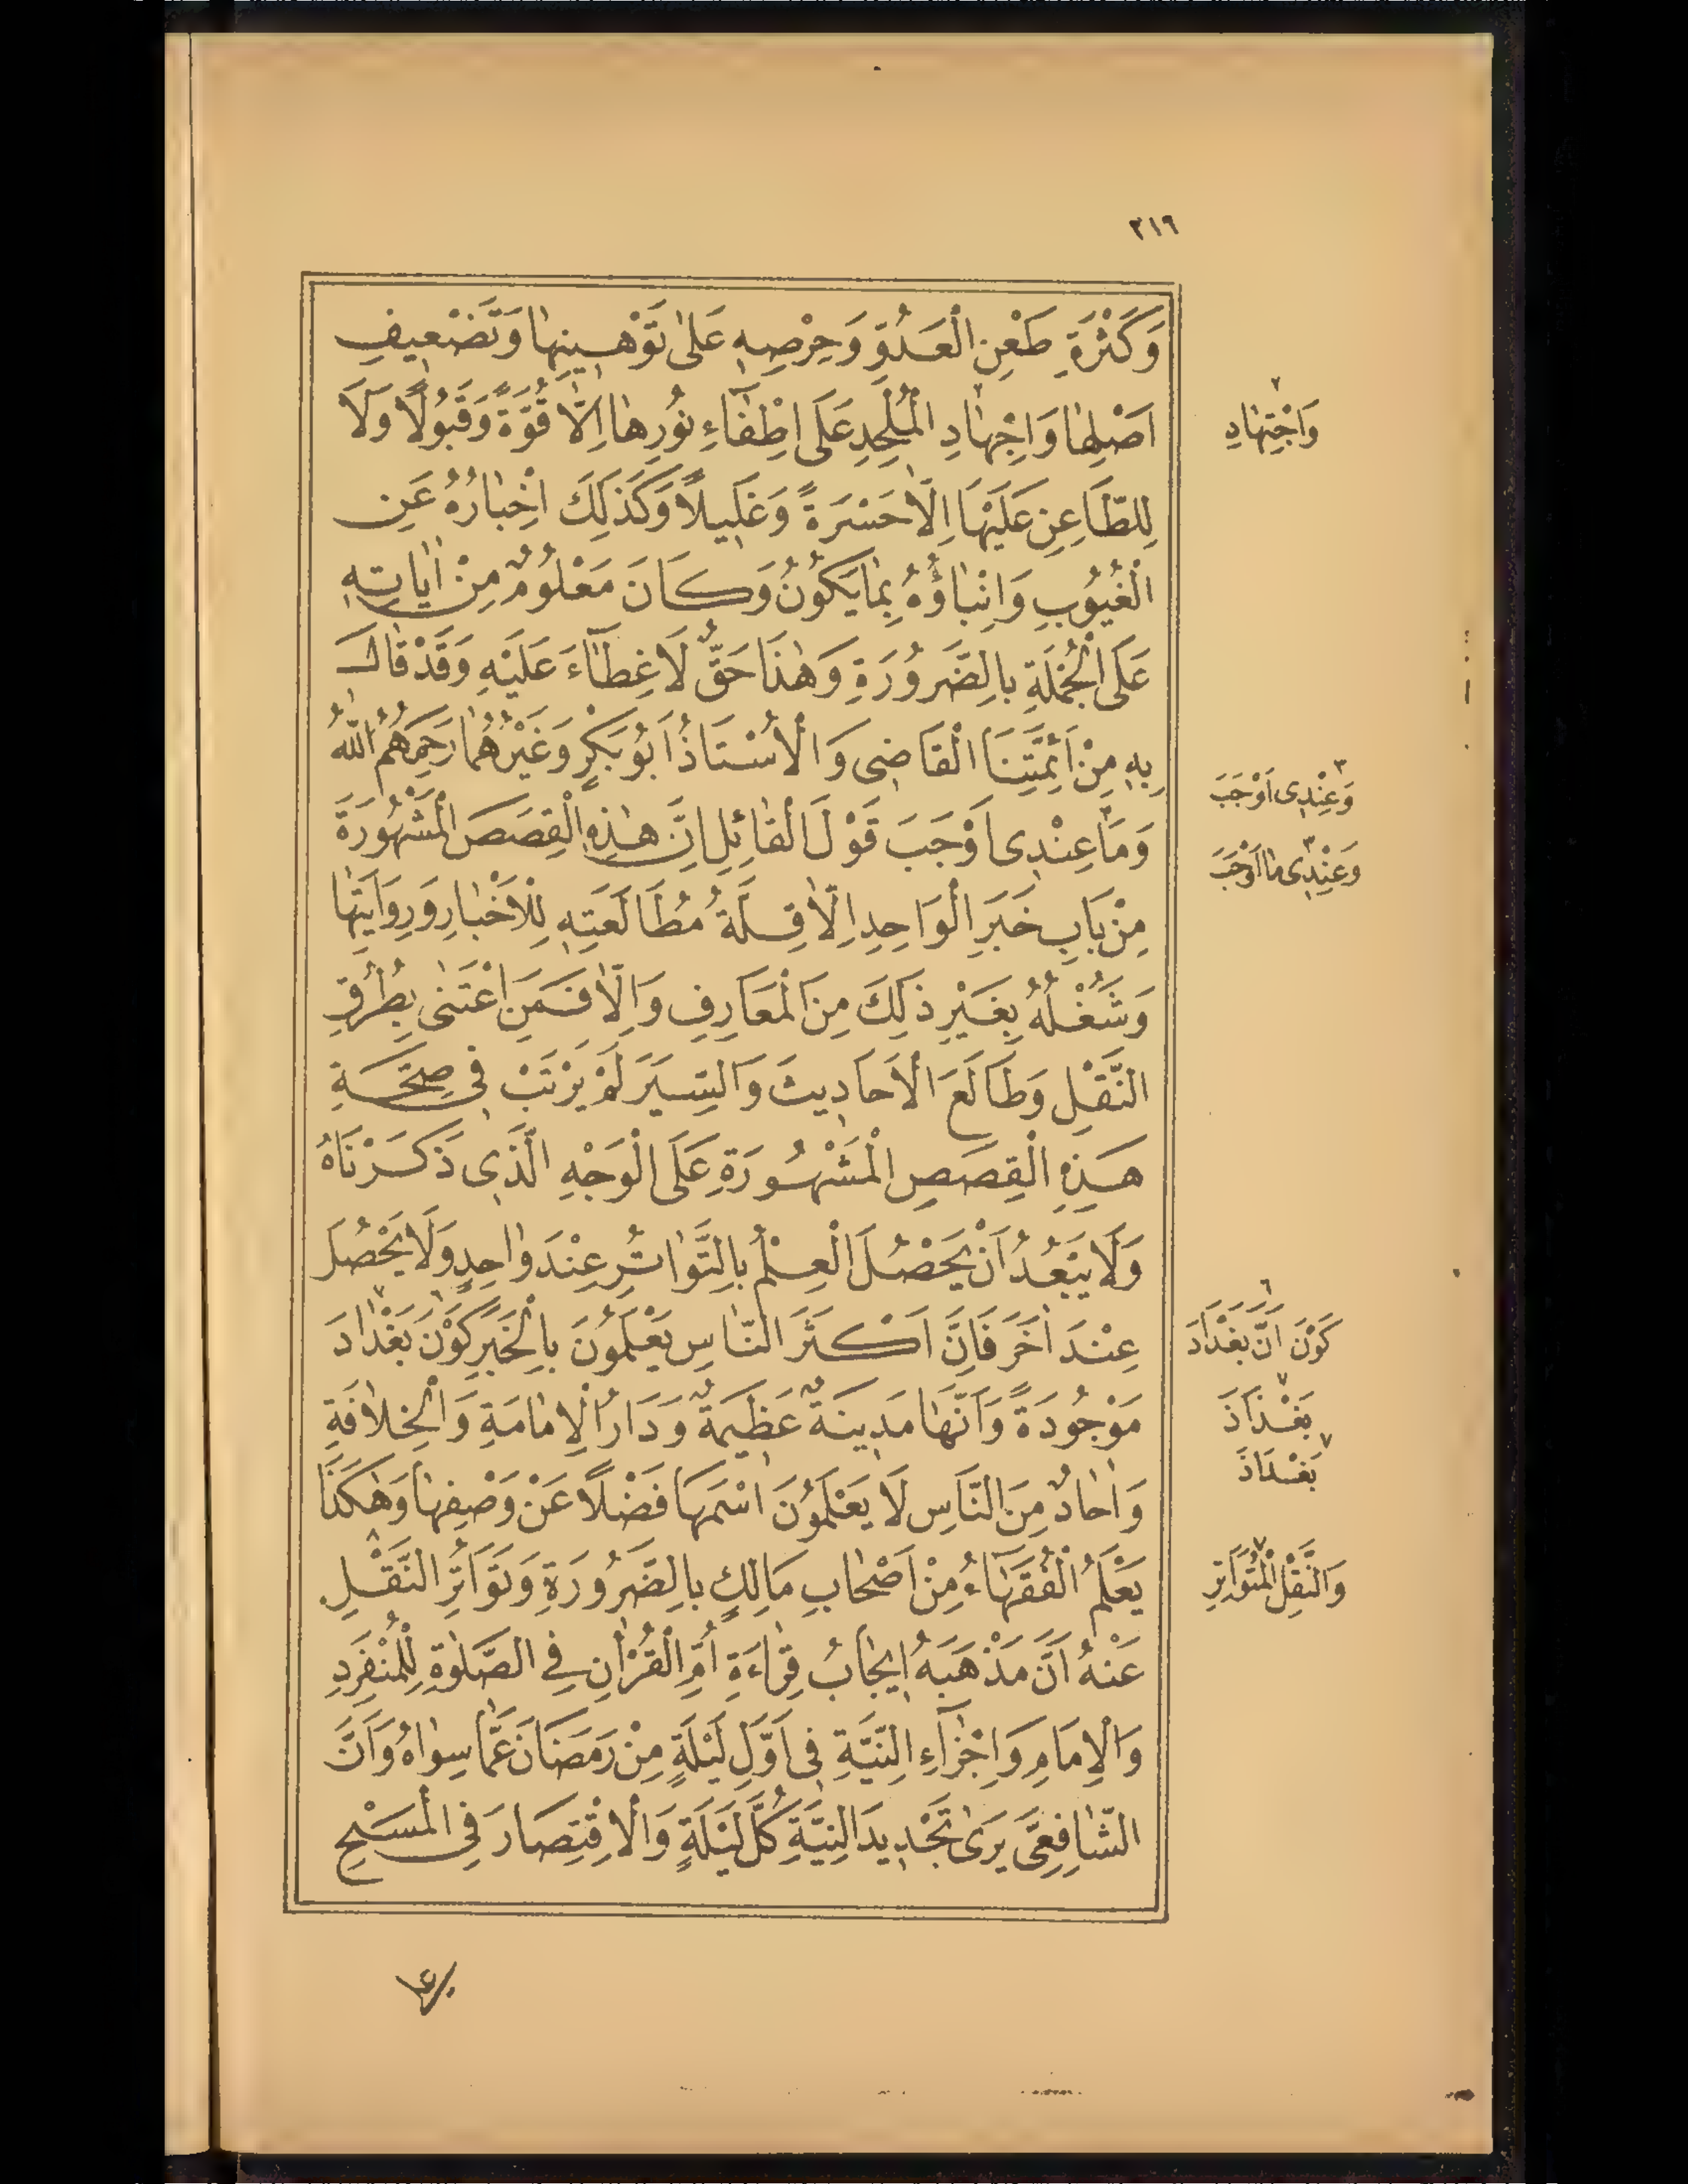 ٢١٦
وَكَثْرَةِ طَعْنِ الْعَدُوِّ وَحِرْصِهِ عَلَى تَوْهِينِهَا وَتَضْعِيفِ
اَصْلِهَا وَاِجْهَادِ الْمُلْحِدِ عَلَى اِطْفَاءِ نُورِهَا اِلَّا قُوَّةً وَقَبُولًا وَلَا
وَاجْتِهَادِ
لِلطَّاعِنِ عَلَيْهَا اِلَّا حَسْرَةً وَغَلِيلًا وَكَذٰلِكَ اَخْبَارُهُ عَنِ
الْغُيُوبِ وَاِنْبَاؤُهُ بِمَا يَكُونُ وَكَانَ مَعْلُومٌ مِنْ اٰيَاتِهِ
عَلَى الْجُمْلَةِ بِالضَّرُورَةِ وَهٰذَا حَقٌّ لَا غِطَاءَ عَلَيْهِ وَقَدْ قَالَ
بِهِ مِنْ اَئِمَّتِنَا الْقَاضِى وَالْاُسْتَاذُ اَبُو بَكْرٍ وَغَيْرُهُمَا رَحِمَهُمُ اللّٰهُ
وَعِنْدِى اَوْجَبَ
وَمَا عِنْدِى اَوْجَبَ قَوْلَ الْقَائِلِ اِنَّ هٰذِهِ الْقِصَصَ الْمَشْهُورَةَ
وَعِنْدِى مَا اَوْجَبَ
مِنْ بَابِ خَبَرِ الْوَاحِدِ اِلَّا قِلَّةُ مُطَالَعَتِهِ لِلْاَخْبَارِ وَرِوَايَتِهَا
وَشُغْلُهُ بِغَيْرِ ذٰلِكَ مِنَ الْمَعَارِفِ وَاِلَّا فَمَنِ اعْتَنٰى بِطُرُقِ
النَّقْلِ وَطَالَعَ الْاَحَادِيثَ وَالسِّيَرَ لَمْ يَرْتَبْ فِى صِحَّةِ
هٰذِهِ الْقِصَصِ الْمَشْهُورَةِ عَلَى الْوَجْهِ الَّذِى ذَكَرْنَاهُ
وَلَا يَبْعُدُ اَنْ يَحْصُلَ الْعِلْمُ بِالتَّوَاتُرِ عِنْدَ وَاحِدٍ وَلَا يَحْصُلَ
عِنْدَ اٰخَرَ فَاِنَّ اَكْثَرَ النَّاسِ يَعْلَمُونَ بِالْخَبَرِ كَوْنَ بَغْدَادَ
كَوْنَ اَنَّ بَغْدَادَ
مَوْجُودَةً وَاَنَّهَا مَدِينَةٌ عَظِيمَةٌ وَدَارُ الْاِمَامَةِ وَالْخِلَافَةِ
بَغْذَاذَ
بَغْدَاذَ
وَاٰحَادٌ مِنَ النَّاسِ لَا يَعْلَمُونَ اسْمَهَا فَضْلًا عَنْ وَصْفِهَا وَهٰكَذَا
يَعْلَمُ الْفُقَهَاءُ مِنْ اَصْحَابِ مَالِكٍ بِالضَّرُورَةِ وَتَوَاتُرِ النَّقْلِ
وَالنَّقْلِ الْمُتَوَاتِرِ
عَنْهُ اَنَّ مَذْهَبَهُ اِيجَابُ قِرَاءَةِ اُمِّ الْقُرْاٰنِ فِى الصَّلٰوةِ لِلْمُنْفَرِدِ
وَالْاِمَامِ وَاِجْزَاءِ النِّيَّةِ فِى اَوَّلِ لَيْلَةٍ مِنْ رَمَضَانَ عَمَّا سِوَاهُ وَاَنَّ
الشَّافِعِىَّ يَرَى تَجْدِيدَ النِّيَّةِ كُلَّ لَيْلَةٍ وَالْاِقْتِصَارَ فِى الْمَسْحِ